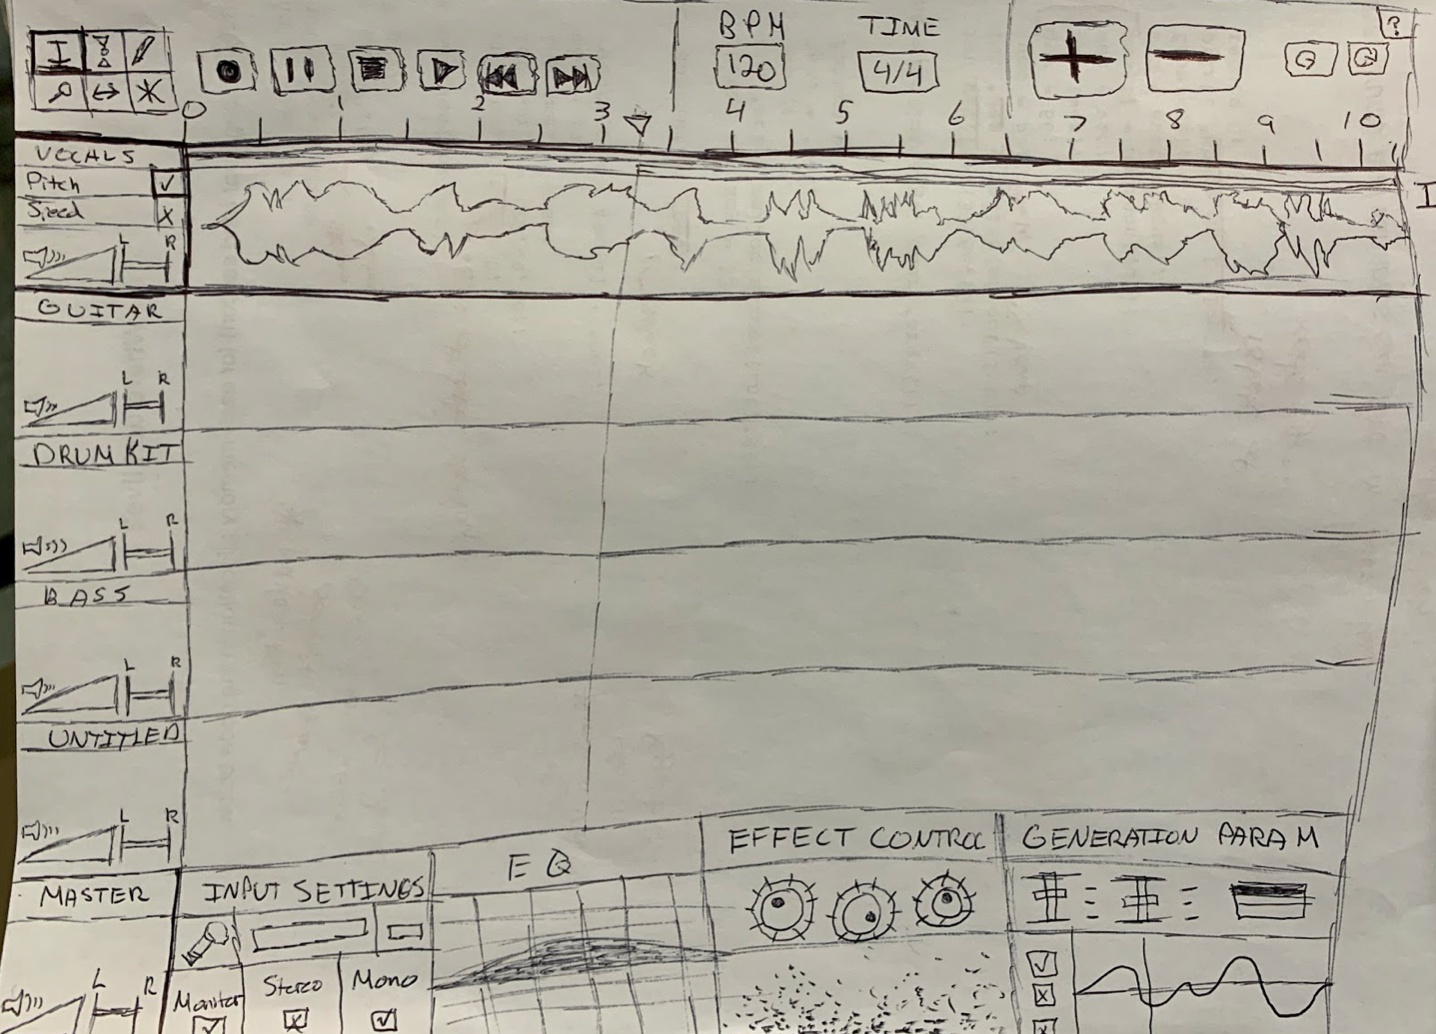 BPM TIME ?
120 4/4
0 1 2 3 4 5 6 7 8 9 10
VOCALS
Pitch
Speed
L R
GUITAR
L R
DRUM KIT
L R
BASS
L R
UNTITLED
L R
MASTER
L R
INPUT SETTINGS
Monitor Stereo Mono
EQ
EFFECT CONTROL
GENERATION PARAM